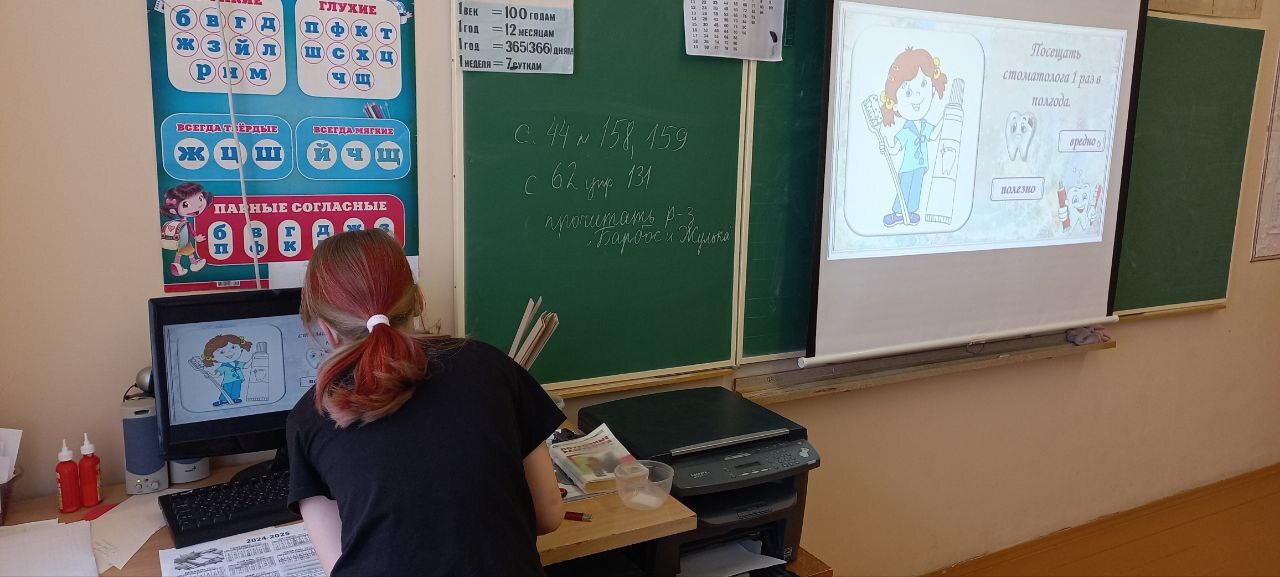 ГЛУХИЕ
б в г д
ж з й л
р н м
п ф к т
ш с х ц
ч щ
ВСЕГДА ТВЁРДЫЕ
ж ц ш
ВСЕГДА МЯГКИЕ
й ч щ
ПАРНЫЕ СОГЛАСНЫЕ
б в г д ж з
п ф к
1 ВЕК = 100 ГОДАМ
1 ГОД = 12 МЕСЯЦАМ
1 ГОД = 365(366) ДНЯМ
1 НЕДЕЛЯ = 7 СУТКАМ
с. 44 № 158, 159
с 62 упр 131
прочитать р-з
"Барбос и Жулька"
Посещать
стоматолога 1 раз в
полгода.
вредно
полезно
2024-2025